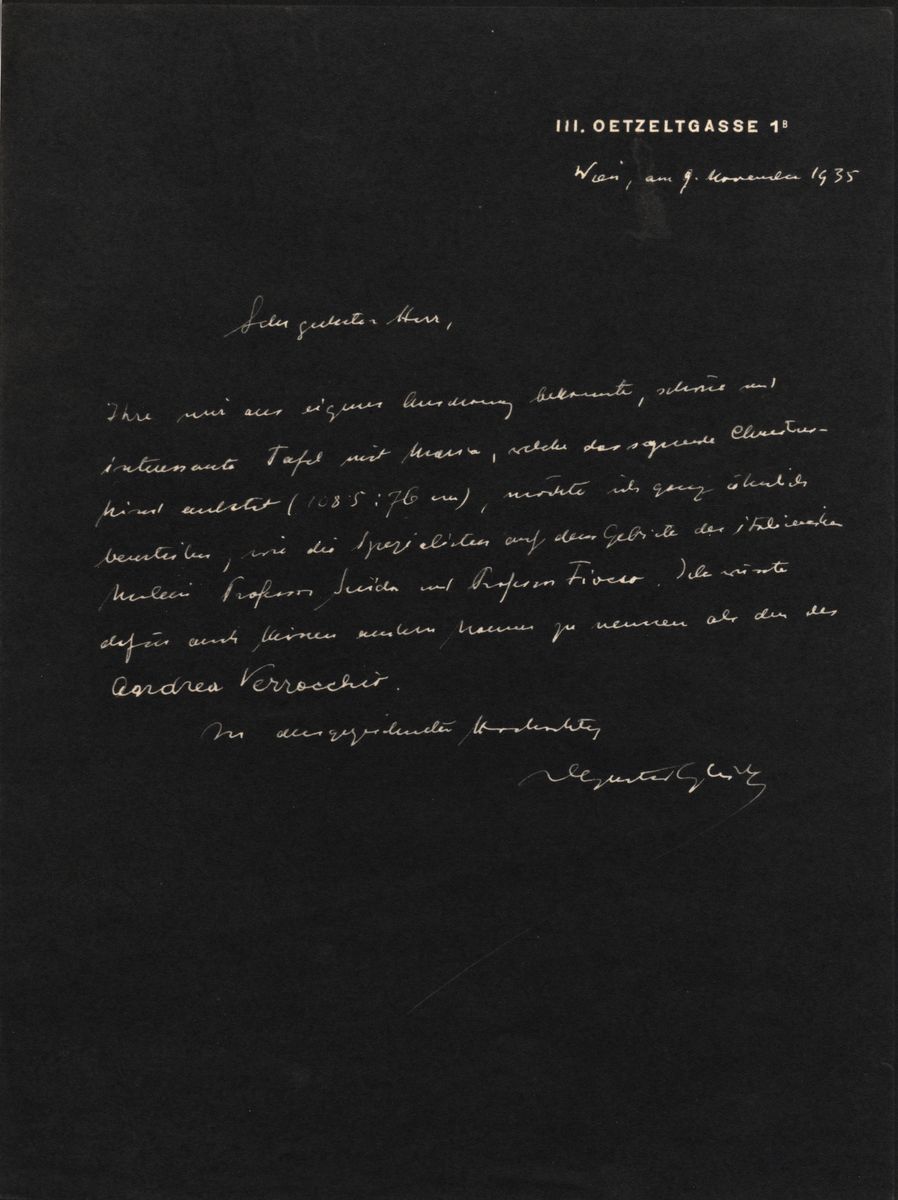 III. OETZELTGASSE 1B
Wien, am 9. November 1935
Sehr geehrter Herr,
Ihre mir aus eigener Anschauung bekannte, schöne und
interessante Tafel mit Maria, welche das segnende Christus-
kind anbetet (108·5 : 76 cm), möchte ich ganz ähnlich
beurteilen, wie die Spezialisten auf dem Gebiete der italienischen
Malerei Professor Suida und Professor Fiocco. Ich wüsste
dafür auch keinen andern Namen zu nennen als den des
Andrea Verrocchio.
In ausgezeichneter Hochachtung